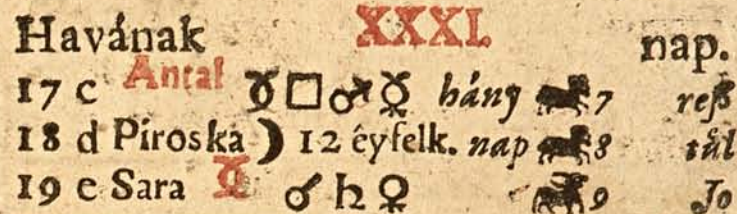 Havának XXXI. nap.
17 c Antal □ ♂ ☿ hány 7 reß
18 d Piroska ☽ 12 éyfelk. nap 8 tůl
19 e Sara ☌ ♄ ♀ 9 Jo